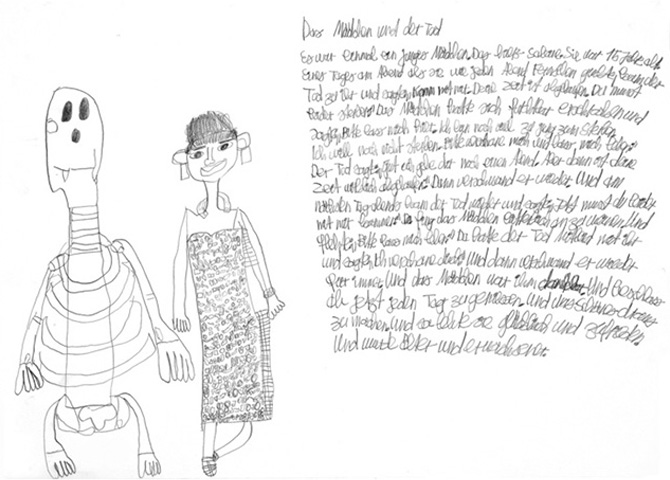 Das Mädchen und der Tod
Es war einmal ein junges Mädchen. Das hiess Sabine. Sie war 15 Jahre alt
Eines Tages am Abend als sie wie jeden Abend Fernsehen guckte, kam der
Tod zu ihr und sagte, komm mit mir. Deine Zeit ist abgelaufen. Du musst
leider sterben. Das Mädchen hatte sich furchtbar erschrocken und
sagte, Bitte lass mich hier. Ich bin noch viel zu jung zum sterben.
Ich will noch nicht sterben. Bitte verschone mich und lass mich leben.
Der Tod sagte, Gut ich gebe dir noch einen Abend. Aber dann ist deine
Zeit wirklich abgelaufen. Dann verschwand er wieder. Und am
nächsten Tag abends kam der Tod wieder und sagte, jetzt musst du leider
mit mir kommen. Da fing das Mädchen an zu weinen. Und
flehte, Bitte lass mich leben. Da hatte der Tod Mitleid mit ihr
und sagte, Ich verschone dich. Und dann verschwand er wieder
für immer. Und das Mädchen war ihm dankbar. Und beschloss
ab jetzt jeden Tag zu geniessen. und was schönes draus
zu machen. und so lebte sie glücklich und zufrieden.
Und wurde älter und erwachsener.